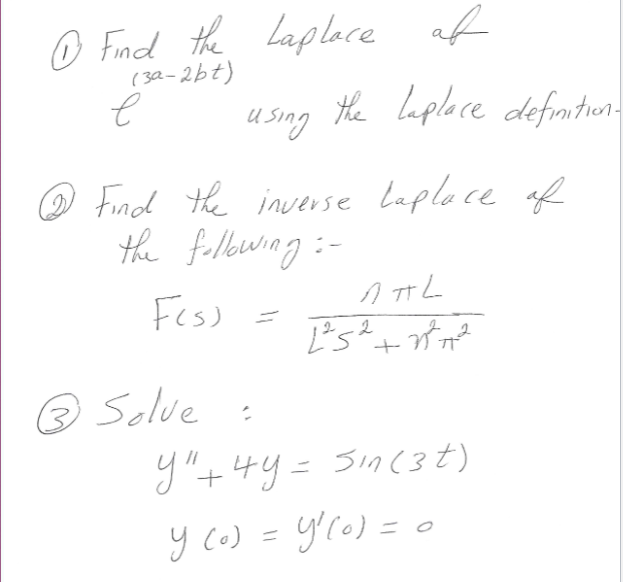 ① Find the Laplace of
e^(3a-2bt) using the Laplace definition.
② Find the inverse Laplace of
the following :-
F(s) = nπL / (L²s² + n²π²)
③ Solve :
y" + 4y = sin(3t)
y(0) = y'(0) = 0